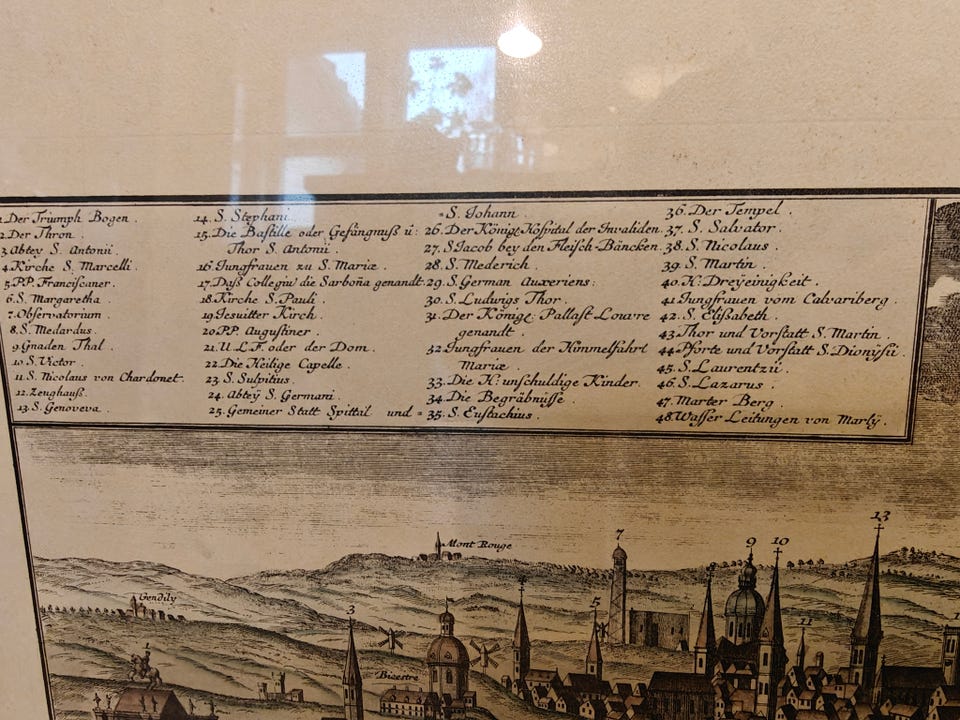 1. Der Triumph Bogen .
2. Der Thron .
3. Abtey S. Antonii .
4. Kirche S. Marcelli .
5. P.P. Franciscaner .
6. S. Margaretha .
7. Observatorium .
8. S. Medardus .
9. Gnaden Thal .
10. S. Victor .
11. S. Nicolaus von Chardonet .
12. Zeughauß .
13. S. Genoveva .
14. S. Stephani
15. Die Bastille oder Gefängnuß ü:
Thor S. Antonii .
16. Jungfrauen zu S. Mariæ .
17. Dyß Collegiū die Sarboña genandt .
18. Kirche S. Pauli .
19. Jesuitter Kirch .
20. P.P. Augustiner .
21. U. L. F. oder der Dom .
22. Die Heilige Capelle .
23. S. Sulpitius .
24. Abteÿ S. Germani .
25. Gemeiner Statt Spittal und =
=S. Johann .
26. Der Könige Hospital der Invaliden .
27. S. Jacob bey den Fleisch-Bäncken .
28. S. Mederich .
29. S. German Auxeriens :
30. S. Ludwigs Thor .
31. Der Könige: Pallast Louvre
genandt .
32. Jungfrauen der Himmelfahrt
Mariæ .
33. Die H: unschuldige Kinder .
34. Die Begräbnisse .
35. S. Eustachius .
36. Der Tempel .
37. S. Salvator .
38. S. Nicolaus .
39. S. Martin .
40. H: Dreÿeinigkeit .
41. Jungfrauen vom Calvariberg .
42. S. Elisabeth .
43. Thor und Vorstatt S. Martin
44. Pforte und Vorstatt S. Dionysii .
45. S. Laurentzii .
46. S. Lazarus .
47. Marter Berg .
48. Wasser Leitungen von Marlÿ .
Mont Rouge
Gendily
Bicestre
3
5
7
9
10
11
13